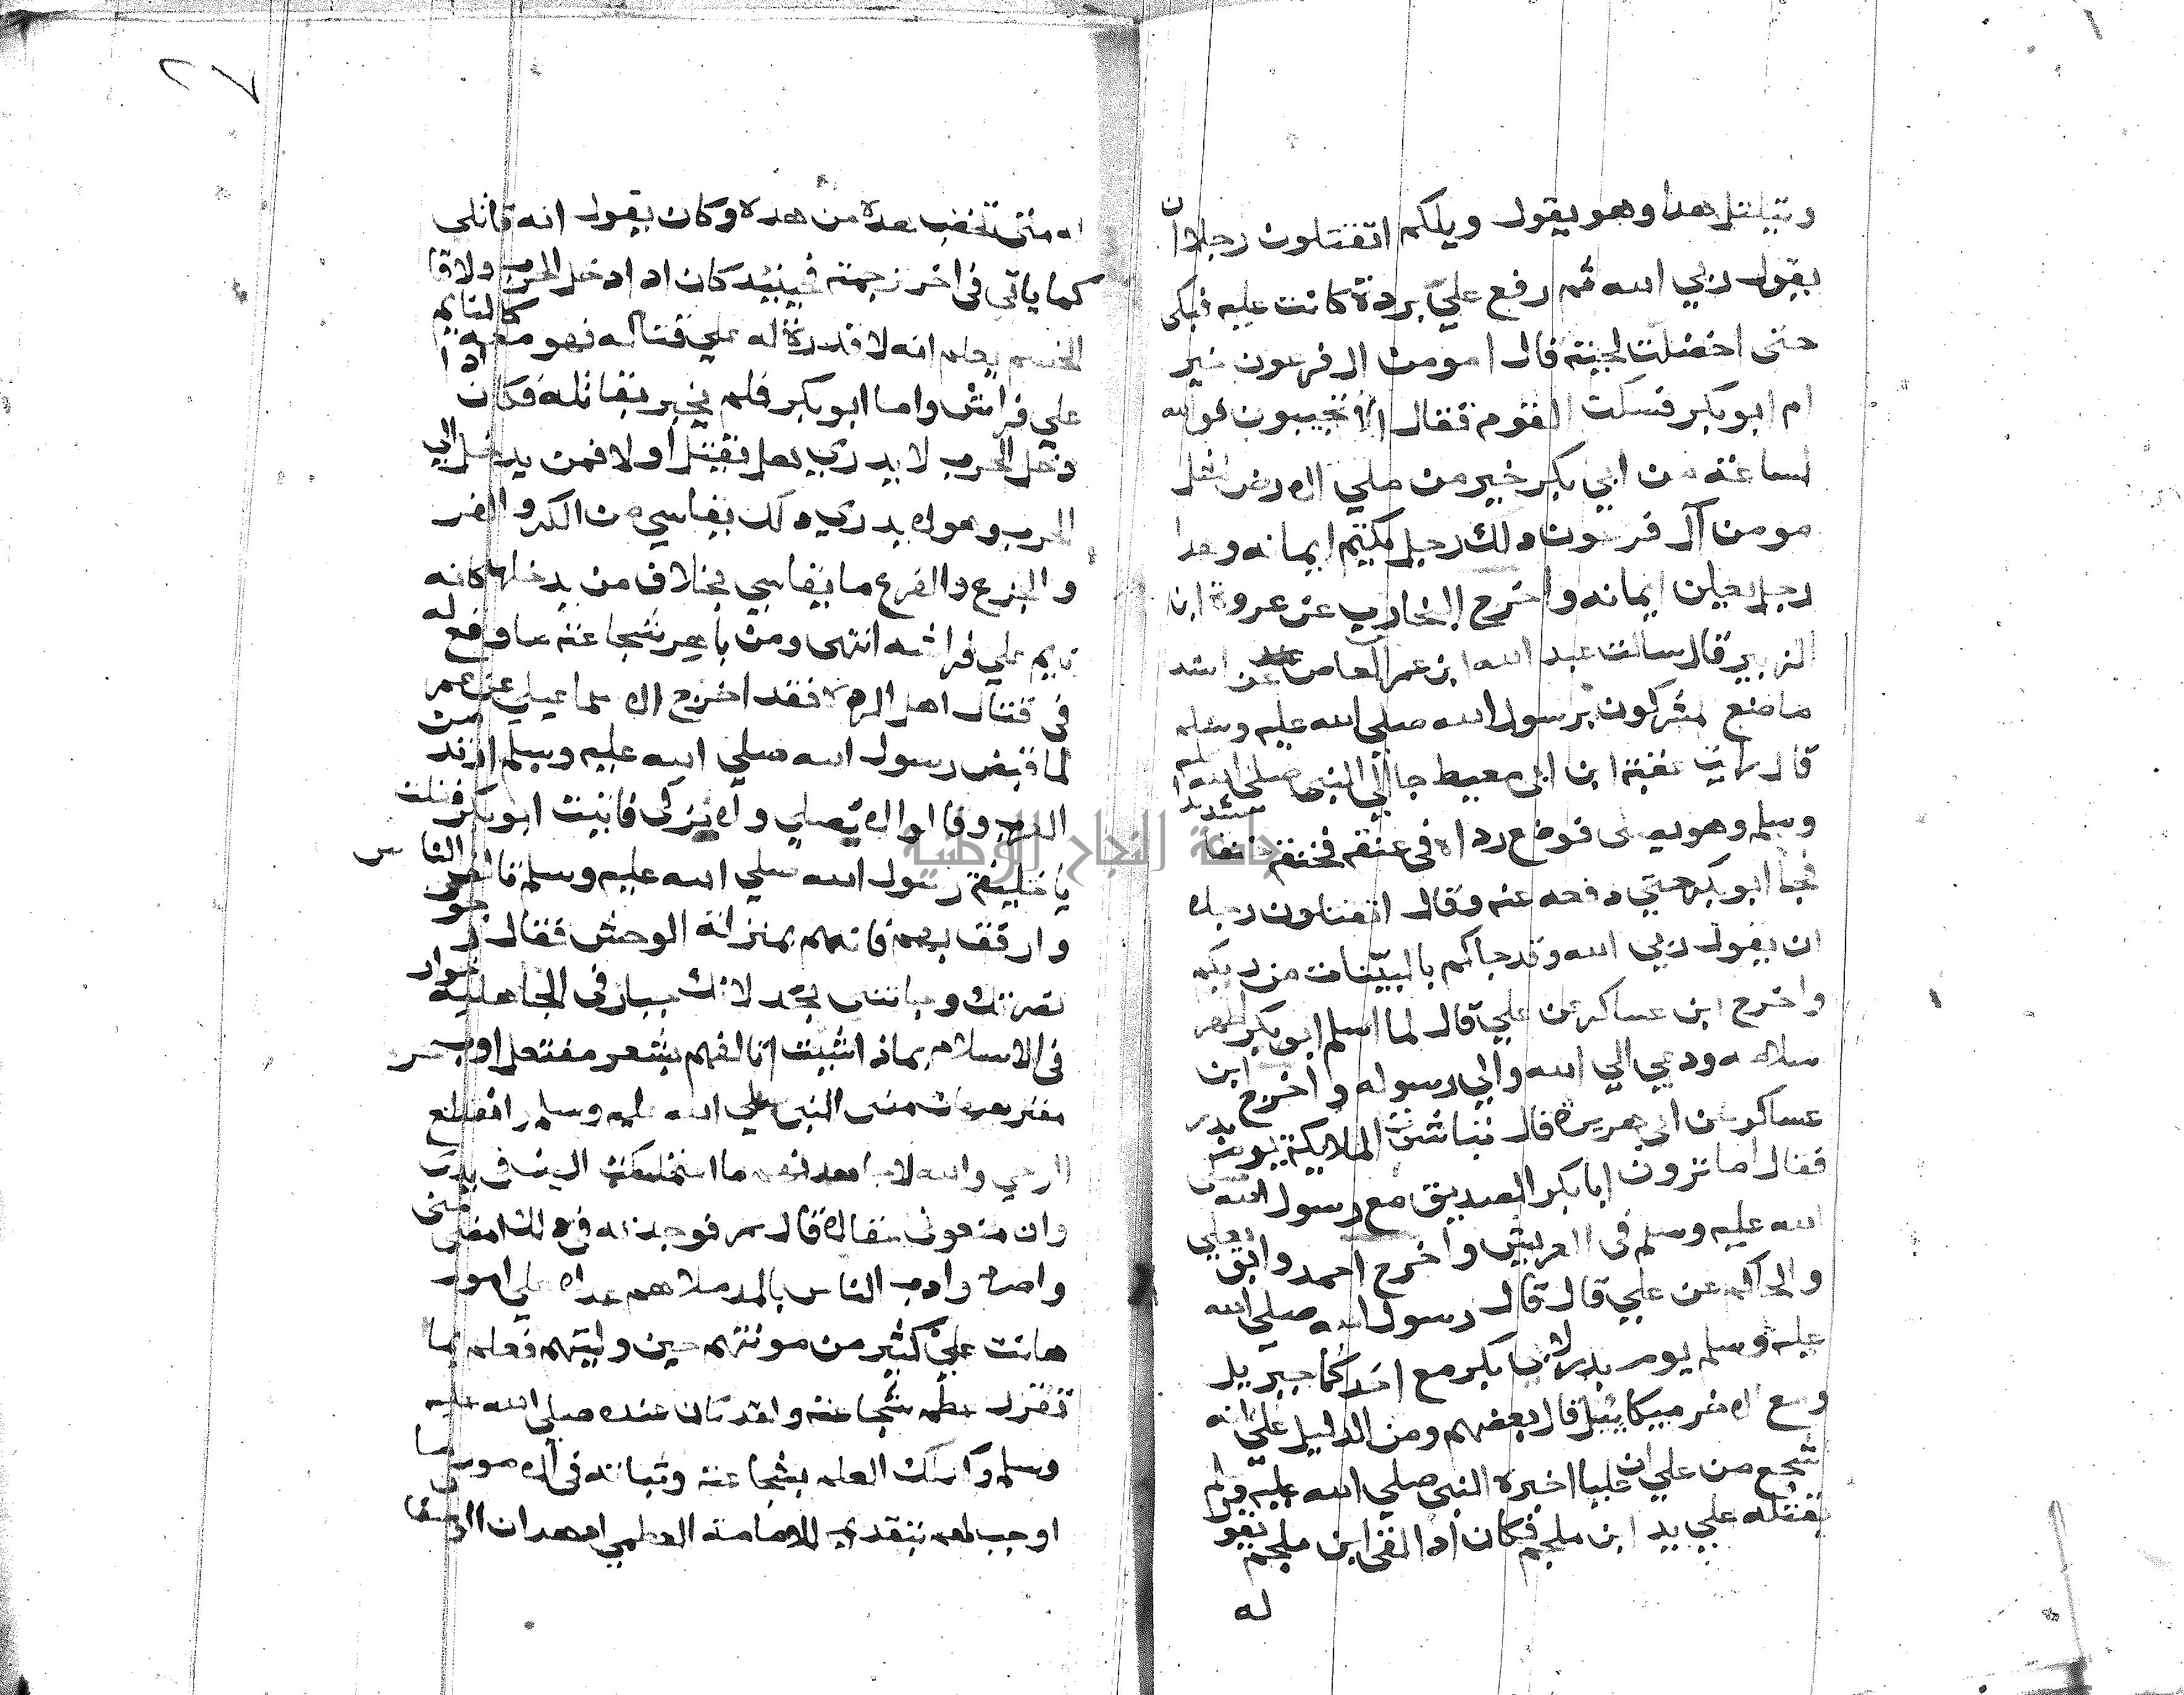 ويتلتل هذا وهو يقول ويلكم اتقتلون رجلا ان
يقول ربي الله ثم رفع علي بردة كانت عليه فبكى
حتى اخضلت لحيته قال امومن ال فرعون خير
ام ابو بكر فسكت القوم فقال الا تجيبون فوالله
لساعة من ابي بكر خير من ملي الارض مثل
مومن آل فرعون ذلك رجل يكتم ايمانه وهذا
رجل يعلن ايمانه واخرج البخاري عن عروة ابن
الزبير قال سالت عبد الله ابن عمر العاص عن اشد
ما صنع المشركون برسول الله صلى الله عليه وسلم
قال رايت عقبة ابن ابي معيط جا الي النبي صلى الله عليه
وسلم وهو يصلى فوضع رداه في عنقه فخنقه خنقا شديدا
فجا ابو بكر حتي دفعه عنه وقال اتقتلون رجلا
ان يقول ربي الله وقد جاكم بالبينات من ربكم
واخرج ابن عساكر عن علي قال لما اسلم ابو بكر اظهر
سلامه ودعي الي الله والي رسوله واخرج ابن
عساكر عن ابي هريرة قال تباشرت الملايكة يوم بدر
فقال اما ترون ابا بكر الصديق مع رسول الله صلى
الله عليه وسلم في العريش واخرج احمد وابو يعلي
والحاكم عن علي قال قال رسول الله صلى الله
عليه وسلم يوم بدر لابي بكر مع احدكما جبريل
ومع الاخر ميكاييل قال بعضهم ومن الدليل علي انه
شجع من علي ان عليا اخبره النبي صلي الله عليه وسلم
بقتله علي يد ابن ملجم فكان اذا لقي ابن ملجم يقو
له
له متى تخضب هذه من هذه وكان يقول انه قاتلي
كما ياتي في اخر ترجمته فحينيذ كان اذا دخل الحرب ولاقا
الخصم يعلم انه لا قدرة له علي قتاله فهو معه كالنايم
علي فراش واما ابو بكر فلم يخبر بقاتله فكان اذا
دخل الحرب لا يدري هل يقتل اولا فمن يدخل الي
الحرب وهو لا يدري ذلك يقاسي من الكر والفر
والجزع والفزع ما يقاسي بخلاف من يدخلها كانه
نايم علي فراشه انتهى ومن باهر شجاعته ما وقع له
في قتال اهل الردة فقد اخرج الاسماعيلي عن عمر
لما قبض رسول الله صلي الله عليه وسلم ارتد من
العرب وقالوا لا نصلي ولا نزكي فاتيت ابو بكر فقلت
يا خليفة رسول الله صلي الله عليه وسلم تالف الناس
وارفق بهم فانهم بمنزلة الوحش فقال رجو
نصرتك وجيتني بخذ لانك جبار في الجاهلية خوار
في الاسلام بماذا شيت اتالفهم بشعر مفتعل او سحر
مفتر هيهات مضى النبي صلي الله عليه وسلم وانقطع
الوحي والله لاجاهدنهم ما استمسك السيف في يدي
وان منعوني عقالا قال عمر فوجدته في ذلك امضى مني
واصرم وادب الناس بالمر ملاهم هداه علي امور
هانت علي كثير من مونتهم حين وليتهم فعلم بما
تقرر عظم شجاعته ولقد كان عنده صلي الله عليه
وسلم وكذلك العلم بشجاعته وثباته في الامور ما
اوجب لهم تقديمه للامامة العظمي اذ هذان الوصفا